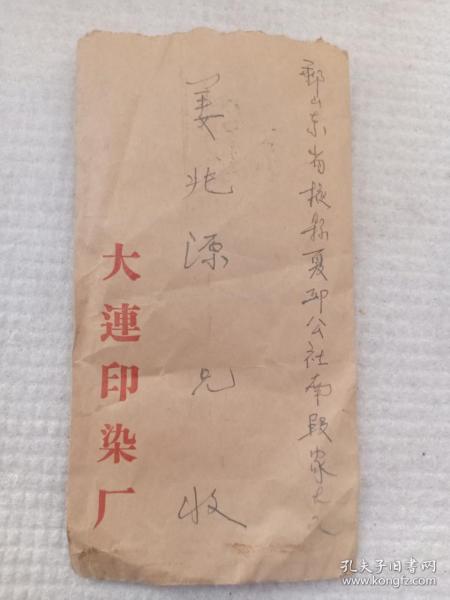 郵山东省掖县夏邱公社南段家大队
姜兆源兄收
大連印染厂
孔夫子旧书网
www.kongfz.com